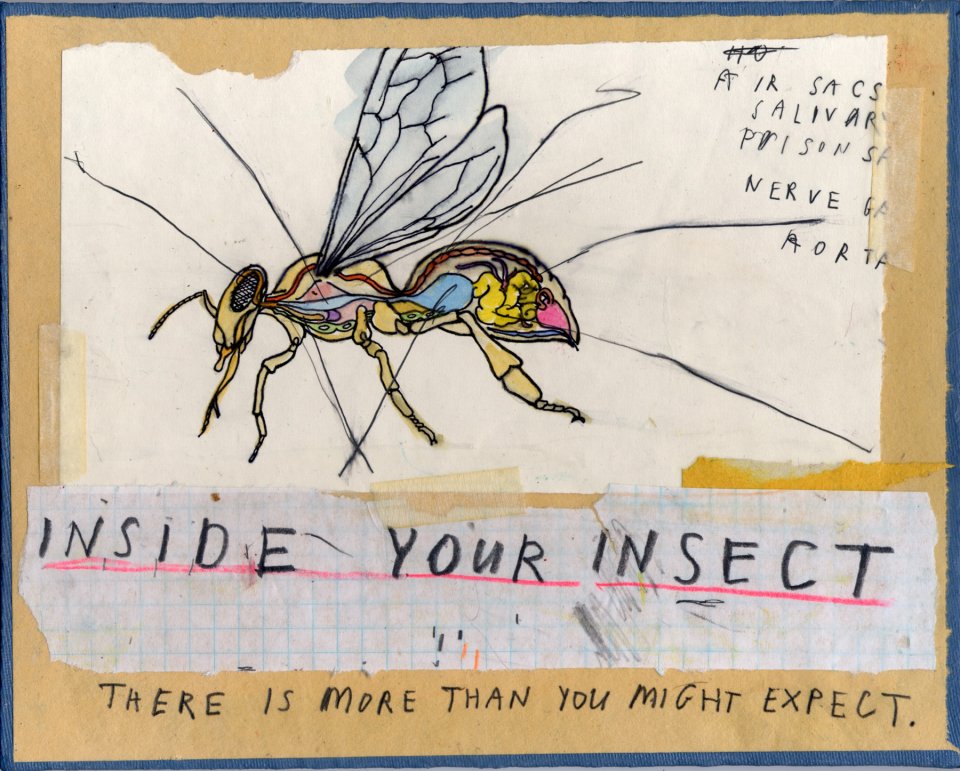 AIR SACS
SALIVAR
POISON SA
NERVE GA
AORTA
INSIDE YOUR INSECT
THERE IS MORE THAN YOU MIGHT EXPECT.